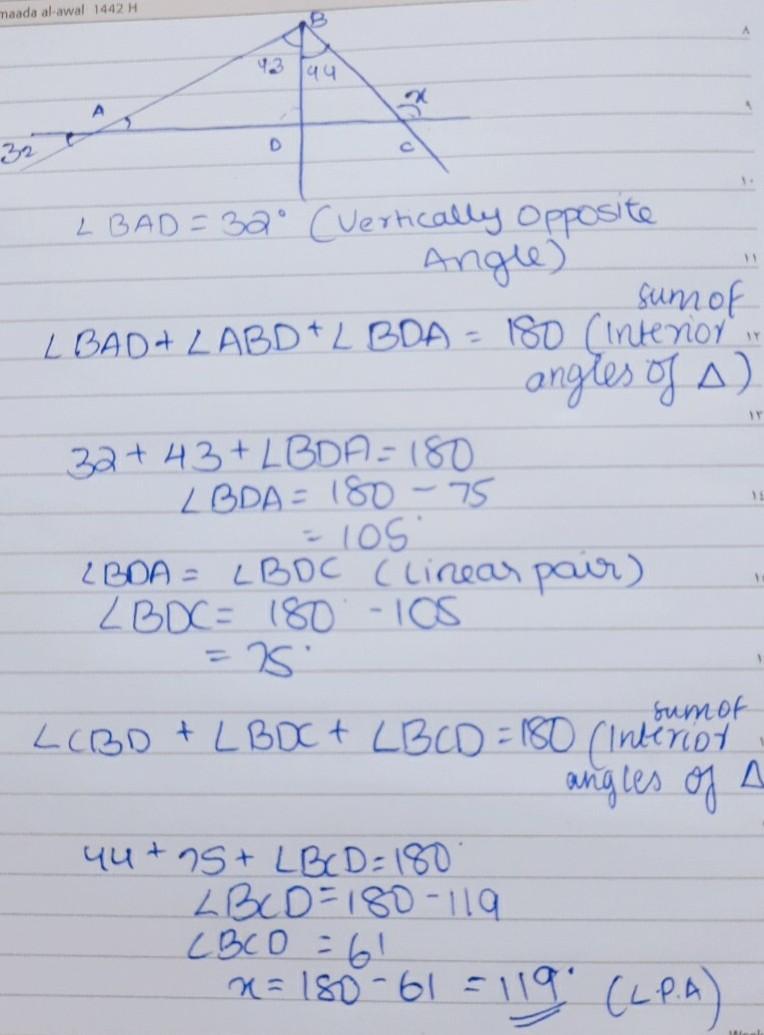 maada al-awal 1442 H
B
43 44
A
x
32
D
C
∠BAD = 32° (Vertically Opposite
Angle)
∠BAD + ∠ABD + ∠BDA = 180 (sum of Interior
angles of Δ)
32 + 43 + ∠BDA = 180
∠BDA = 180 - 75
= 105°
∠BDA = ∠BDC (Linear pair)
∠BDC = 180 - 105
= 75°
∠CBD + ∠BDC + ∠BCD = 180 (sum of Interior
angles of Δ
44 + 75 + ∠BCD = 180°
∠BCD = 180 - 119
∠BCD = 61
x = 180 - 61 = 119° (L.P.A)
٨
٩
١٠
١١
١٢
١٣
١٤